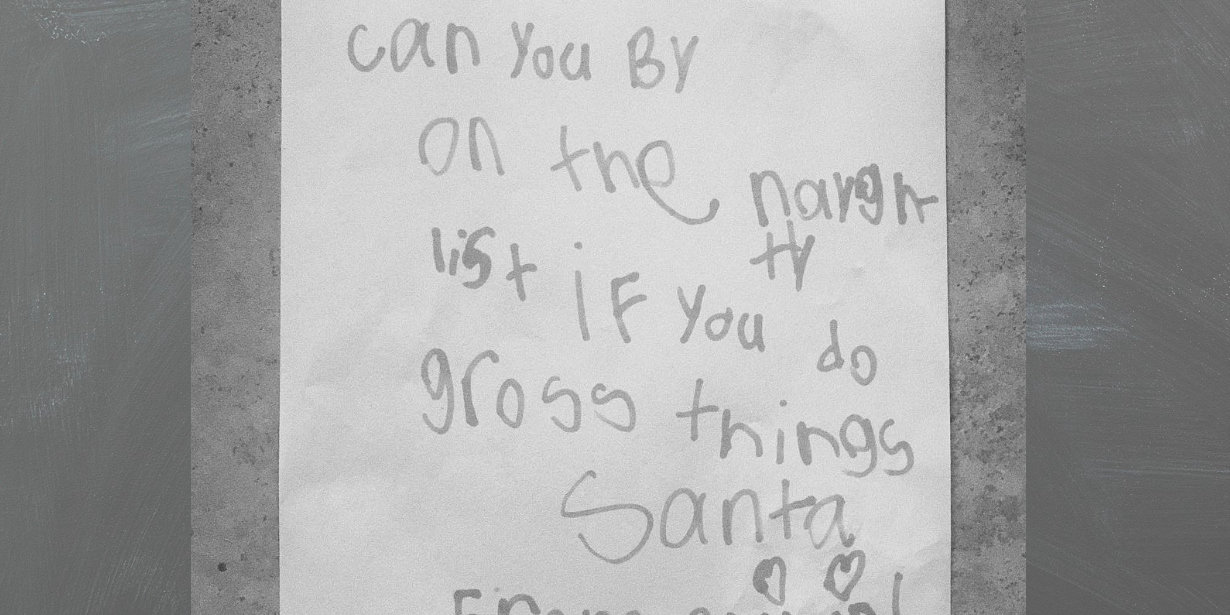 can you By
on the nargh
ty
list iF you do
gross things
Santa